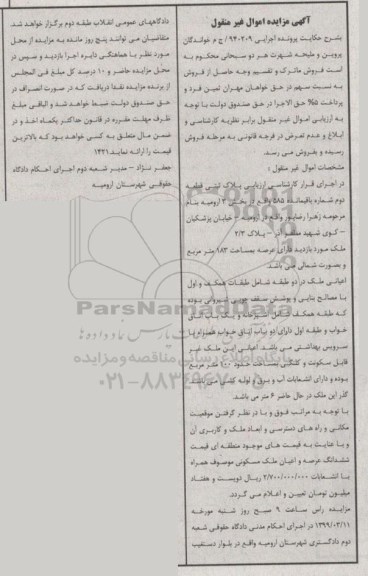 آگهی مزایده اموال غیر منقول
بشرح حکایت پرونده اجرایی ۹۴۰۲۰۹/ج م خواندگان
پروین و ملیحه شهرت هر دو سبحانی محکوم به
است فروش ماترک و تقسیم وجه حاصل از فروش
به نسبت سهم در حق خواهان مهران ثمین فرد و
پرداخت ۵% حق الاجرا در حق صندوق دولت با توجه
به ارزیابی اموال غیر منقول برابر نظریه کارشناسی و
ابلاغ و عدم تعرض در فرجه قانونی به مرحله فروش
رسیده و بفروش می رسد.
مشخصات اموال غیر منقول :
در اجرای قرار کارشناسی ارزیابی پلاک ثبتی قطعه
دوم شماره باقیمانده ۵۸۵ واقع در بخش ۳ ارومیه بنام
مرحومه زهرا رضاپور واقع در ارومیه – خیابان پزشکیان
– کوی شهید مظفر آذر – پلاک ۲/۳
ملک مورد بازدید دارای عرصه بمساحت ۱۸۳ متر مربع
و بصورت شمالی می باشد.
اعیانی ملک در دو طبقه شامل طبقات همکف و اول
با مصالح بنایی و پوشش سقف چوبی شیروانی بوده
که طبقه همکف شامل آشپزخانه و یک باب اتاق
خواب و طبقه اول دارای دو باب اتاق خواب همراه با
سرویس بهداشتی می باشد. اعیانی این ملک غیر
قابل سکونت و کلنگی بمساحت حدود ۱۰۰ متر مربع
بوده و دارای انشعابات آب و برق و لوله کشی می باشد.
گذر این ملک در حال حاضر ۶ متر می باشد.
با توجه به مراتب فوق و با در نظر گرفتن موقعیت
مکانی و راه های دسترسی و ابعاد ملک و کاربری آن
و با عنایت به قیمت های موجود منطقه ای قیمت
ششدانگ عرصه و اعیان ملک مسکونی موصوف همراه
با انشعابات ۲/۷۰۰/۰۰۰/۰۰۰ ریال دویست و هفتاد
میلیون تومان تعیین و اعلام می گردد.
مزایده راس ساعت ۹ صبح روز شنبه مورخه
۱۳۹۹/۰۳/۱۱ در اجرای احکام مدنی دادگاه حقوقی شعبه
دوم دادگستری شهرستان ارومیه واقع در بلوار دستغیب
دادگاههای عمومی انقلاب طبقه دوم برگزار خواهد شد.
متقاضیان می توانند پنج روز مانده به مزایده از محل
مورد نظر با هماهنگی دایره اجرا بازدید و سپس در
محل مزایده حاضر و ۱۰ درصد کل مبلغ فی المجلس
از برنده مزایده نقدا دریافت که در صورت انصراف در
حق صندوق دولت ضبط خواهد شد و الباقی مبلغ
ظرف مهلت مقرره در قانون حداکثر یکماه اخذ و در
ضمن مال متعلق به کسی خواهد بود که بالاترین
قیمت را ارائه نماید.۱۴۲۱
جعفر نژاد – مدیر شعبه دوم اجرای احکام دادگاه
حقوقی شهرستان ارومیه
ParsNamadData
پایگاه اطلاع رسانی مناقصه و مزایده